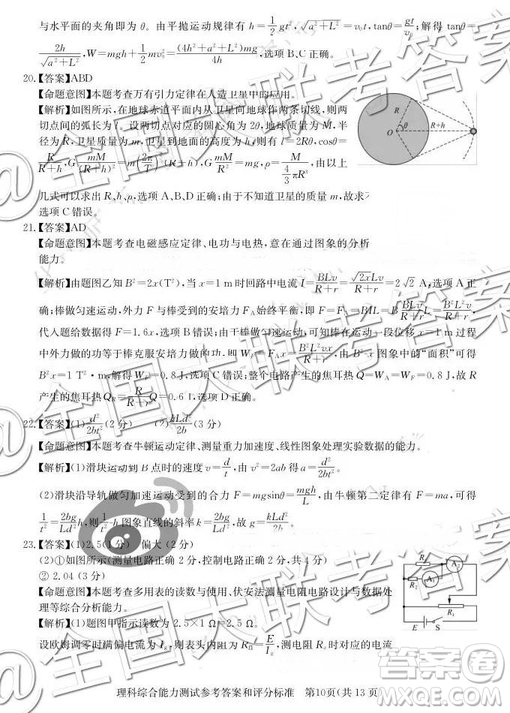 与水平面的夹角即为 θ。由平抛运动规律有 h=½gt²,√(a²+L²)=v₀t,tanθ=gt/v₀;解得 tanθ=
2h/√(a²+L²),W=mgh+½mv₀²=(4h²+a²+L²)mg/4h,选项 B、C 正确。
20.【答案】ABD
【命题意图】本题考查万有引力定律在人造卫星中的应用。
【解析】如图所示,在地球赤道平面内从卫星向地球作两条切线,则两
切点间的弧长为 l。设两切点对应的圆心角为 2θ,地球质量为 M,半
径为 R,卫星质量为 m,卫星到地面的高度为 h,则有 l=2Rθ,cosθ=
R/(R+h),G Mm/(R+h)²=m(2π/T)²(R+h),G Mm/R²=mg,ρ=M/(4/3 πR³),由以上
几式可以求出 R、h、ρ,选项 A、B、D 正确;由于不知道卫星的质量 m,故求
选项 C 错误。
21.【答案】AD
【命题意图】本题考查电磁感应定律、电功与电热,意在通过图象的分析
能力。
【解析】由题图乙知 B²=2x(T²),当 x=1 m 时回路中电流 I=BLv/(R+r)=√(2x)Lv/(R+r)=2√2 A,选项 A 正
确;棒做匀速运动,外力 F 与棒受到的安培力 F_A 始终平衡,即 F=F_A=BIL=B²L²v/(R+r)
代入题给数据得 F=1.6x,选项 B 错误;由于做匀速运动,可知棒在运动一段位移 x=1 m 过程
中外力做的功等于棒克服安培力做的功,W_F=F_A x=B²L²vx/(R+r),B²x 由图象中的“面积”可得
B²x=1 T²·m,解得 W_F=0.8 J,选项 C 错误;整个电路产生的焦耳热 Q=W_A=W_F=0.8 J,故 R
产生的焦耳热 Q_R=R/(R+r)Q=0.6 J,选项 D 正确。
22.【答案】(1)d²/2bt² (2)kLd²/2b
【命题意图】本题考查牛顿运动定律、测量重力加速度、线性图象处理实验数据的能力。
【解析】(1)滑块运动到 B 点时的速度 v=d/t,由 v²=2ab 得 a=d²/2bt²。
(2)滑块沿导轨做匀加速运动受到的合力 F=mgsinθ=mgh/L,由牛顿第二定律有 F=ma,可得
1/t²=2bg/Ld² h,则 1/t²-h 图象直线的斜率 k=2bg/Ld²,故 g=kLd²/2b。
23.【答案】(1)2.5(1 分) 偏大(2 分)
(2)①如图所示(测量电路正确 2 分,控制电路正确 2 分,共 4 分)
② 2.04(3 分)
【命题意图】本题考查多用表的读数、伏安法测量电阻电路设计与数据处
理等综合分析能力。
【解析】(1)题图甲指示读数为 2.5×1 Ω=2.5 Ω。
设欧姆调零时满偏电流为 I_g,则表头内阻为 R₀=E/I_g,测电阻 R 时
理科综合能力测试参考答案和评分标准 第10页(共13页